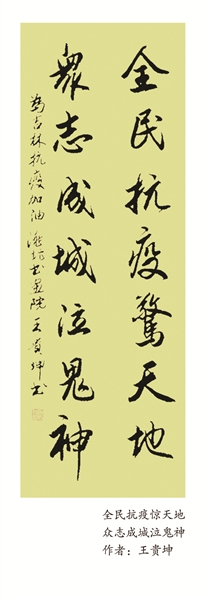 全民抗疫驚天地
衆志成城泣鬼神
為吉林抗疫加油 濰坊书画院 王貴坤书
全民抗疫惊天地
众志成城泣鬼神
作者：王贵坤